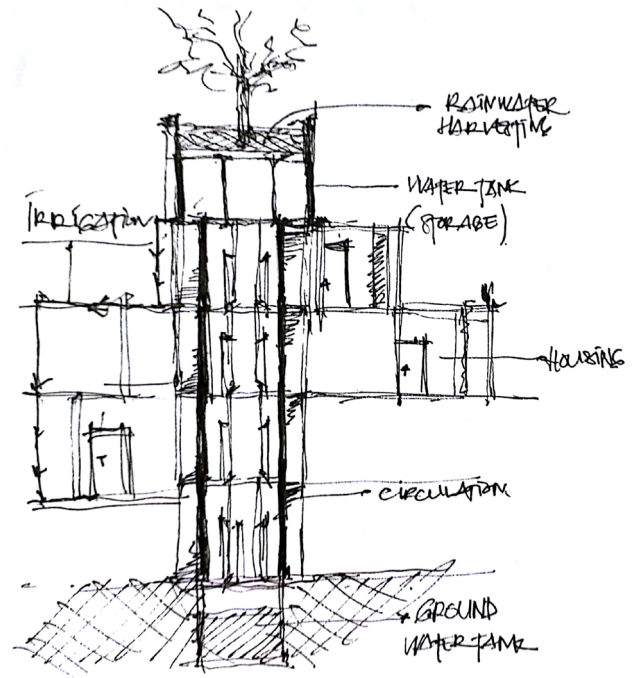 RAINWATER
HARVESTING
WATER TANK
(STORAGE)
IRRIGATION
HOUSING
CIRCULATION
GROUND
WATER TANK